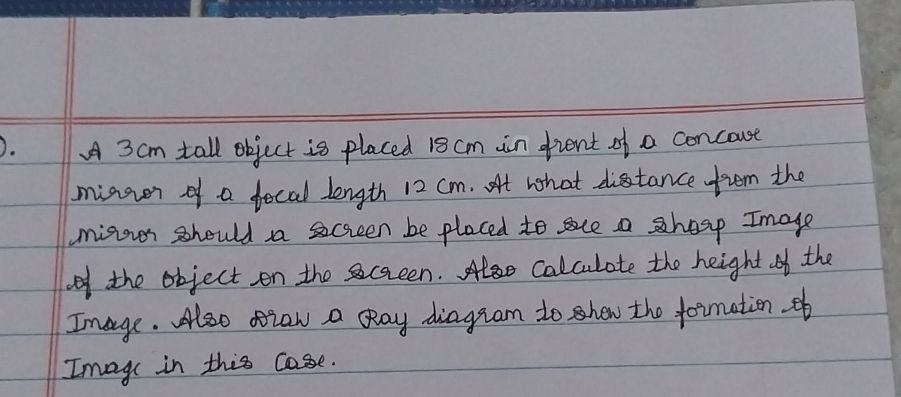 A 3cm tall object is placed 18 cm in front of a concave
mirror of a focal length 12 cm. At what distance from the
mirror should a screen be placed to see a sharp Image
of the object on the screen. Also Calculate the height of the
Image. Also draw a Ray diagram to show the formation of
Image in this Case.